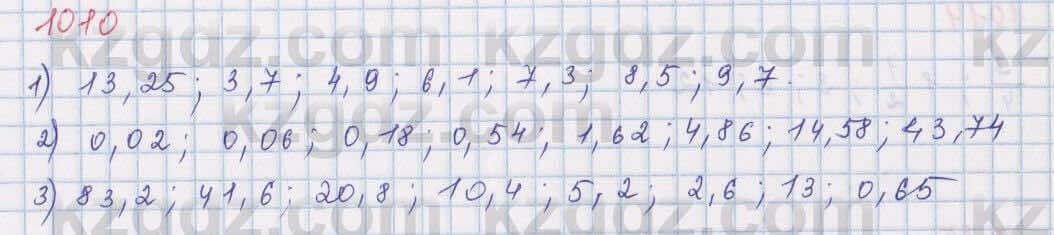 1010
1) 13,25; 3,7; 4,9; 6,1; 7,3; 8,5; 9,7.
2) 0,02; 0,06; 0,18; 0,54; 1,62; 4,86; 14,58; 43,74
3) 83,2; 41,6; 20,8; 10,4; 5,2; 2,6; 13; 0,65